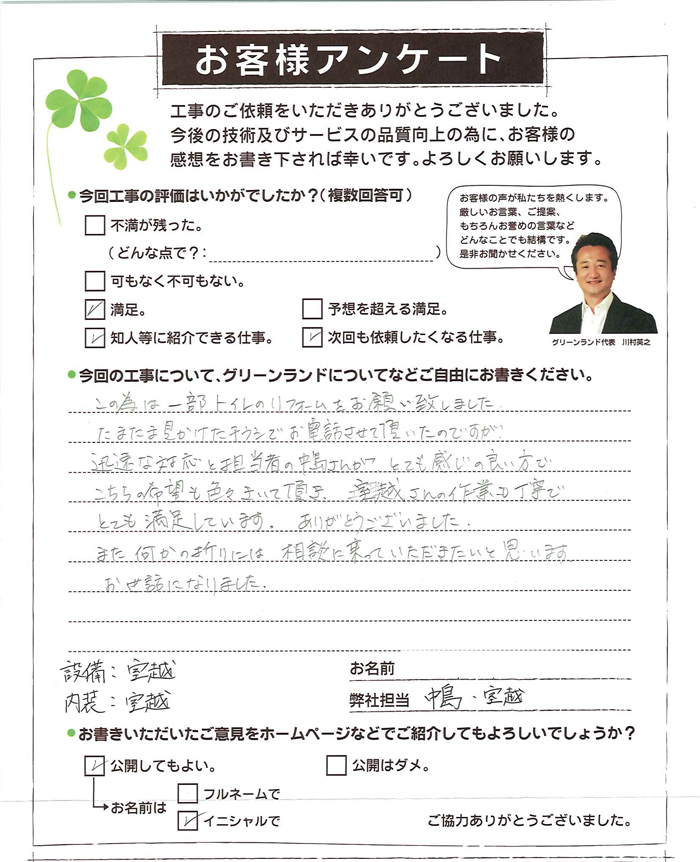 お客様アンケート
工事のご依頼をいただきありがとうございました。
今後の技術及びサービスの品質向上の為に、お客様の
感想をお書き下されば幸いです。よろしくお願いします。
●今回工事の評価はいかがでしたか？（複数回答可）
不満が残った。
（どんな点で？：　）
可もなく不可もない。
満足。
予想を超える満足。
知人等に紹介できる仕事。
次回も依頼したくなる仕事。
お客様の声が私たちを熱くします。
厳しいお言葉、ご提案、
もちろんお誉めの言葉など
どんなことでも結構です。
是非お聞かせください。
グリーンランド代表　川村英之
●今回の工事について、グリーンランドについてなどご自由にお書きください。
この為は一部トイレのリフォームをお願い致しました.
たまたま見かけたチラシでお電話させて頂いたのですが
迅速な対応と担当者の中島さんがとても感じの良い方で
こちらの希望も色々きいて頂き 室越さんの作業も丁寧で
とても満足しています. ありがとうございました.
また何かの折りには 相談に乗っていただきたいと思います
お世話になりました.
設備：室越
内装：室越
お名前
弊社担当 中島・室越
●お書きいただいたご意見をホームページなどでご紹介してもよろしいでしょうか？
公開してもよい。
公開はダメ。
お名前は
フルネームで
イニシャルで
ご協力ありがとうございました。